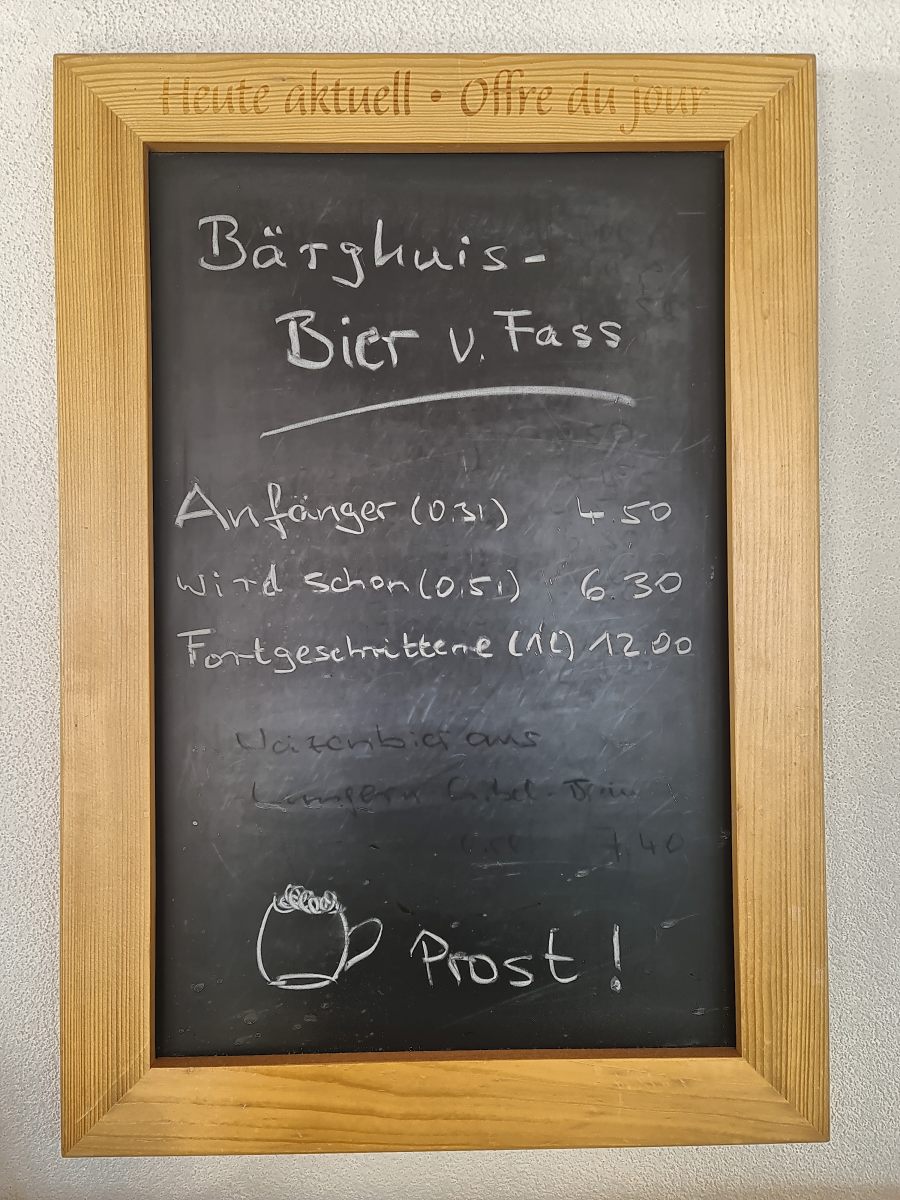 Heute aktuell • Offre du jour
Bärghuis-
Bier v. Fass
Anfänger (0.3l) 4.50
wird schon (0.5l) 6.30
Fortgeschrittene (1L) 12.00
Waizenbier aus
Lungern
7.40
Prost!